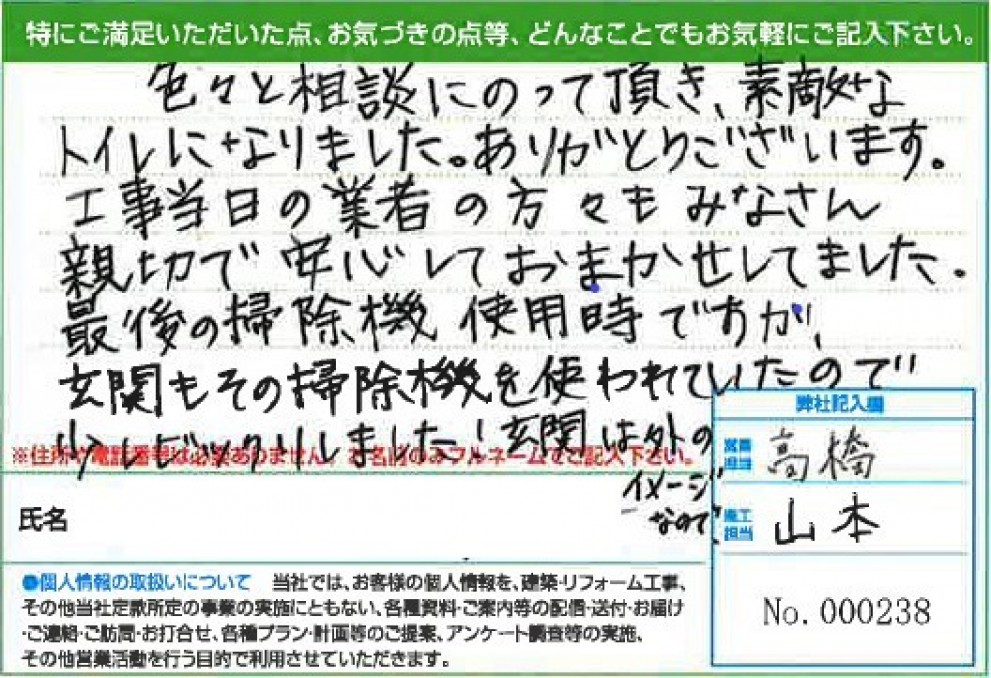 特にご満足いただいた点、お気づきの点等、どんなことでもお気軽にご記入下さい。
色々と相談にのって頂き、素敵な
トイレになりました。ありがとうございます。
工事当日の業者の方々もみなさん
親切で安心しておまかせしてました。
最後の掃除機使用時ですが、
玄関もその掃除機を使われていたので
少しビックリしました!玄関は外の
イメージ
なので、
※住所や電話番号は必要ありません。お名前のみフルネームでご記入下さい。
氏名
弊社記入欄
営業担当 高橋
施工担当 山本
No.000238
●個人情報の取扱いについて 当社では、お客様の個人情報を、建築・リフォーム工事、
その他当社定款所定の事業の実施にともない、各種資料・ご案内等の配信・送付・お届け
・ご連絡・ご訪問・お打合せ、各種プラン・計画等のご提案、アンケート調査等の実施、
その他営業活動を行う目的で利用させていただきます。